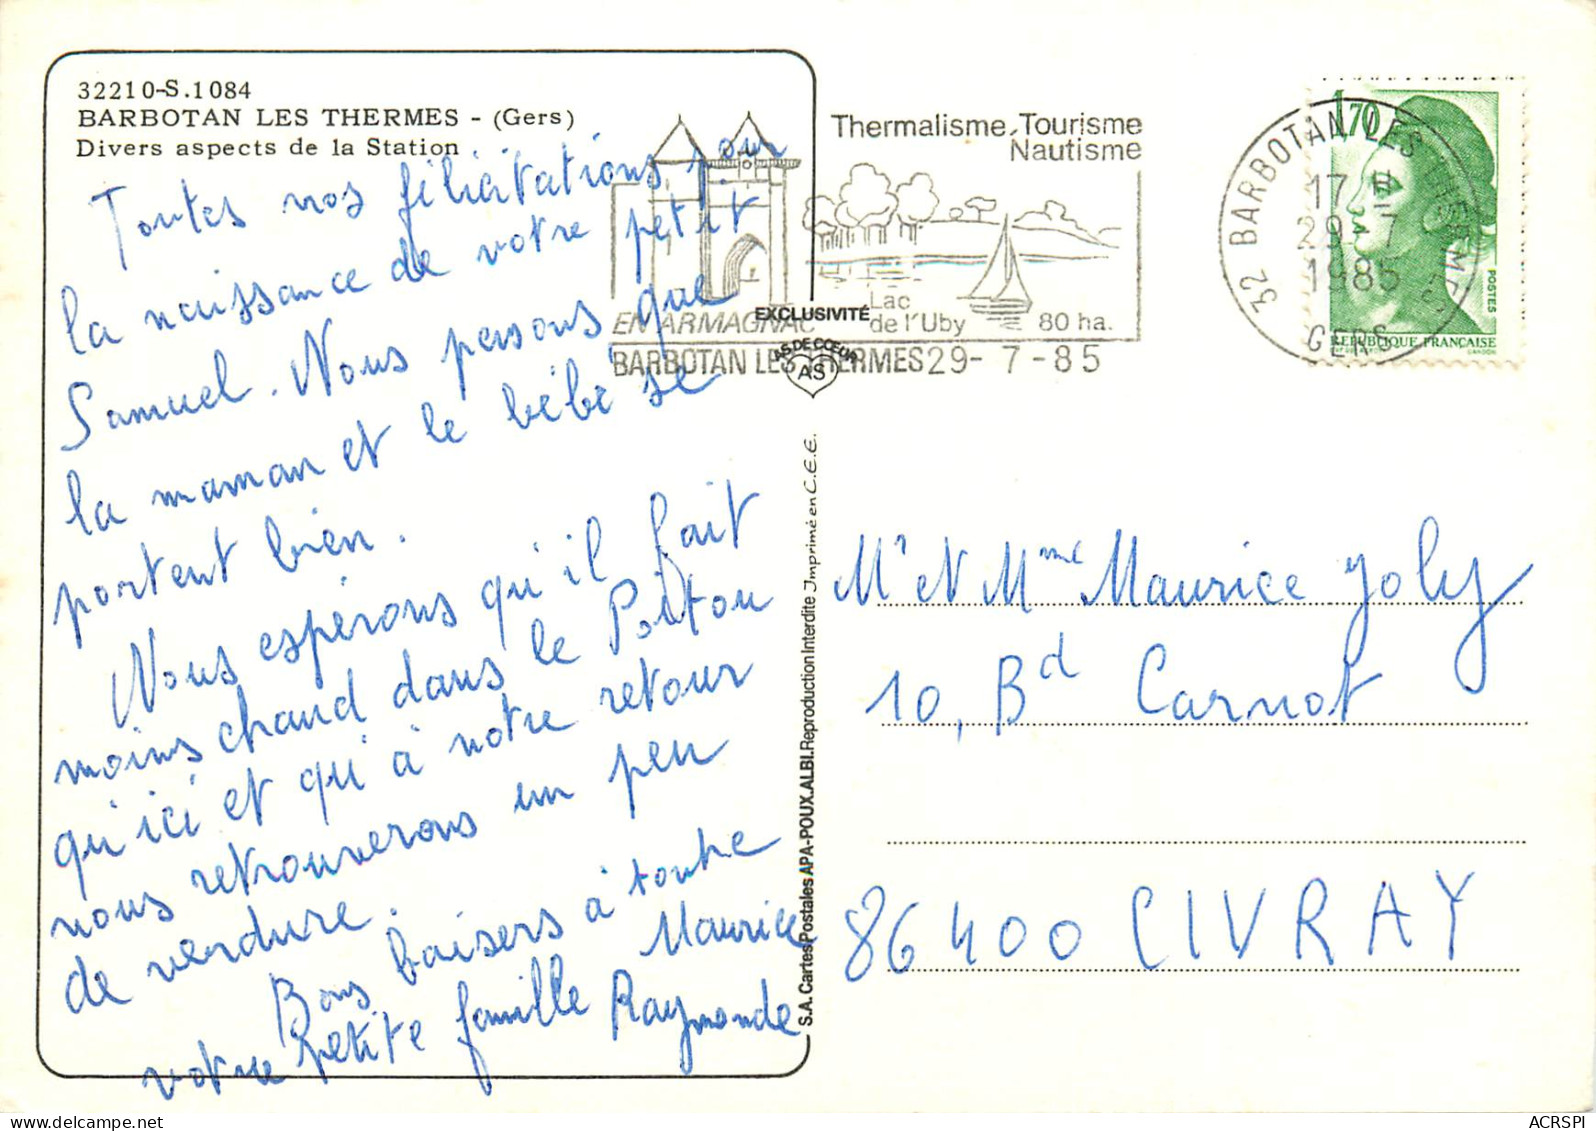 32210-S.1084
BARBOTAN LES THERMES - (Gers)
Divers aspects de la Station
Toutes nos félicitations pour
la naissance de votre petit
Samuel. Nous pensons que
la maman et le bébé se
portent bien.
Nous espérons qu'il fait
moins chaud dans le Poitou
qu'ici et qu'à notre retour
nous retrouverons un peu
de verdure.
Bons baisers à toute
votre petite famille
Maurice
Raymonde
Thermalisme, Tourisme
Nautisme
EN ARMAGNAC
Lac
de l'Uby
80 ha.
BARBOTAN LES THERMES 29-7-85
EXCLUSIVITÉ
AS DE CŒUR
AS
32 BARBOTAN LES THERMES
17 H
29 - 7
1985
GERS
1,70
POSTES
REPUBLIQUE FRANÇAISE
GANDON
S.A. Cartes Postales APA-POUX.ALBI. Reproduction Interdite Imprimé en C.E.E.
Mr et Mme Maurice Joly
10, Bd Carnot
86400 CIVRAY
ACRSPI